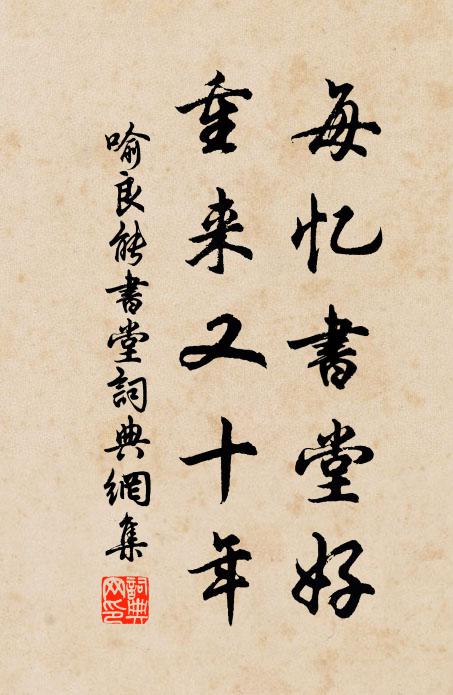 每忆书堂好
重来又十年
喻良能書堂詞典網集
詞典网印